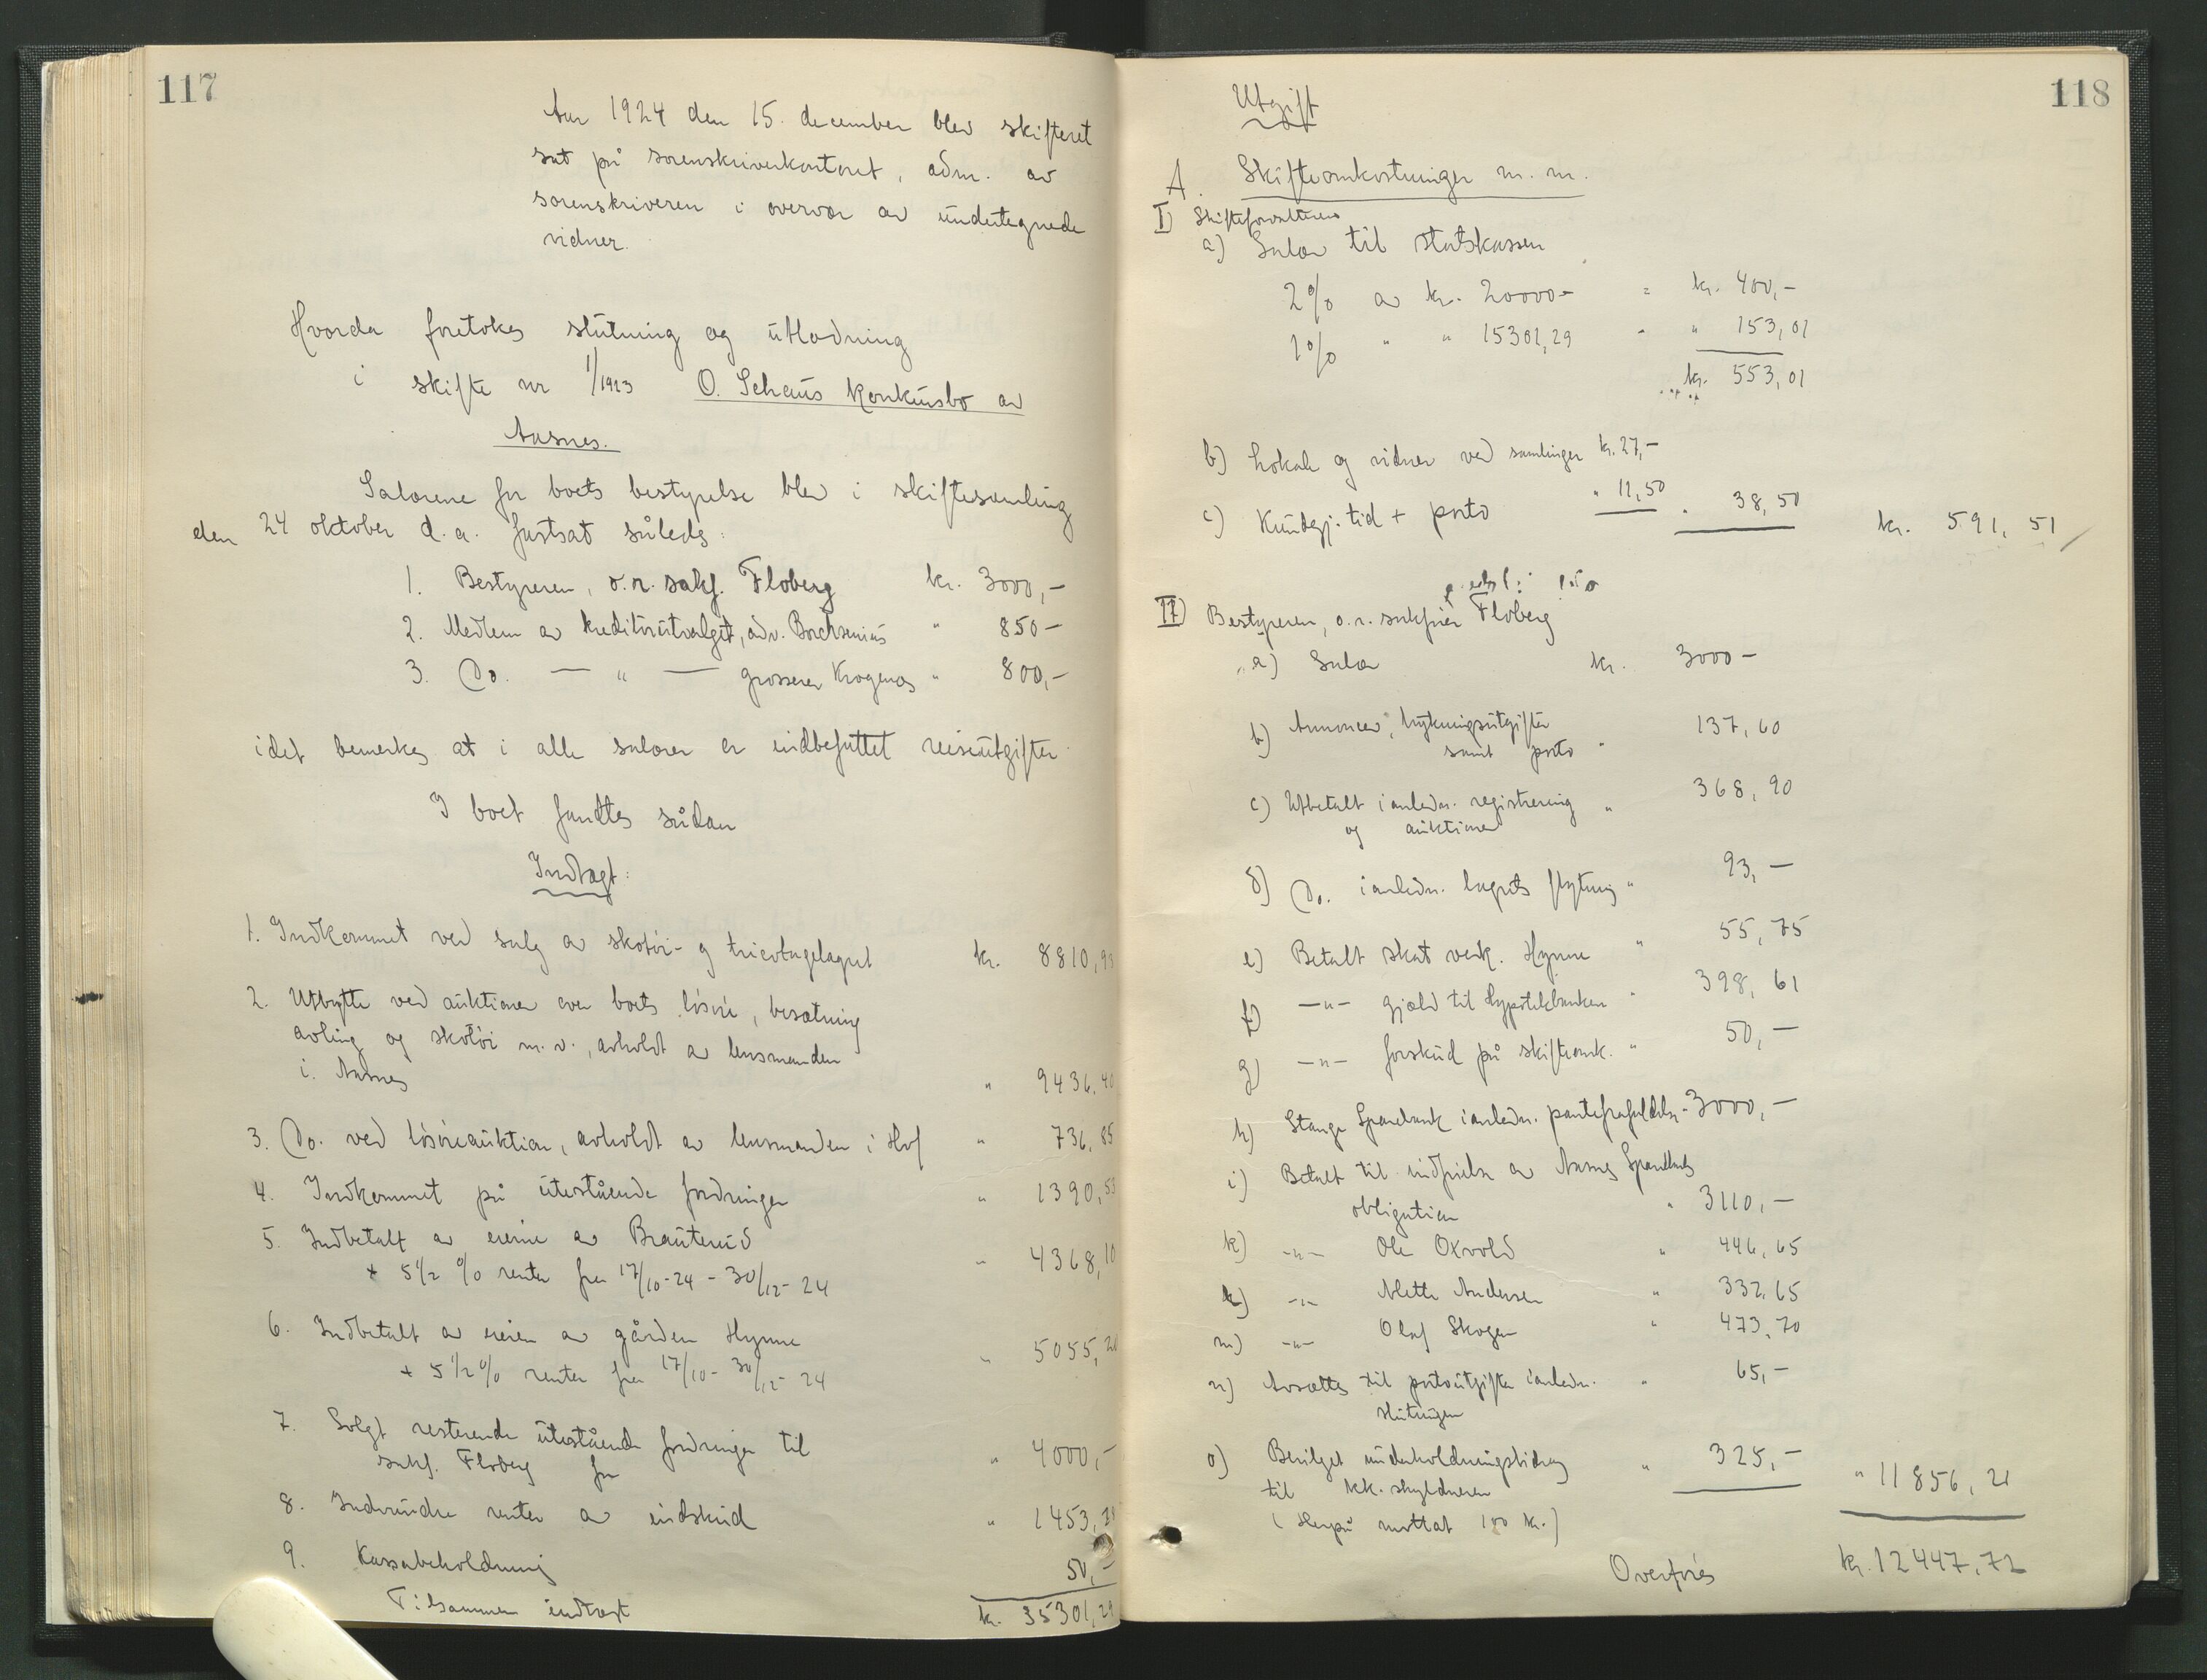 117
Aar 1924 den 15. december blev skifteret
sat på sorenskriverkontoret, adm. av
sorenskriveren i overvær av undertegnede
vidner.
Hvorda foretokes slutning og utlodning
i skifte nr 1/1923 O. Schøus konkursbo av
Aasnes.
Salærene for boets bestyrelse blev i skiftesamling
den 24 oktober d.a. fastsat således:
1. Bestyreren, o.r. sakf. Floberg kr. 3000,-
2. Medlem av kreditorutvalget, adv. Borchsenius " 850-
3. Do. — " — grosserer Krogenæs " 800,-
idet bemerkes at i alle salærer er indbefattet reiseutgifter.
I boet fandtes sådan
Indtægt:
1. Indkommet ved salg av skotøi- og tricotagelagret kr. 8810,93
2. Utbytte ved auktioner over boets løsøre, besætning
avling og skotøi m.v., avholdt av lensmanden
i Aasnes " 9436,40
3. Do. ved løsøreauktion, avholdt av lensmanden i Hof " 736,85
4. Indkommet på utestående fordringer " 1390,53
5. Indbetalt av eierne av Brauterud
+ 5 1/2 % renter fra 17/10-24 - 30/12-24 " 4368,10
6. Indbetalt av eieren av gården Hynne
+ 5 1/2 % renter fra 17/10 - 30/12-24 " 5055,20
7. Solgt resterende utestående fordringer til
sakf. Floberg for " 4000,-
8. Indvundne renter av indskud " 1453,28
9. Kassabeholdning 50,-
Tilsammen indtægt kr. 35301,29
118
Utgift
A. Skifteomkostninger m. m.
I) Skifteforvalteren
a) Salær til statskassen
2% av kr. 20000- = kr. 400,-
1% " " 15301,29 - " 153,01
kr. 553,01
b) Lokale og vidner ved samlinger kr. 27,-
c) Kundgj. tid + porto " 11,50 " 38,50 kr. 591,51
II) Bestyreren, o.r. sakfører Floberg
a) Salær kr. 3000-
b) Annoncer, trykningsutgifter
samt porto " 137,60
c) Utbetalt i anledn. registrering " 368,90
og auktioner
d) Do. i anledn. lagrets flytning " 93,-
e) Betalt skat vedk. Hynne " 55,75
f) -"- gjæld til Hypotekbanken " 398,61
g) -"- forskud på skifteomk. " 50,-
h) Stange Sparebank i anledn. pantefrafaldelse - 3000,-
i) Betalt til indfrielse av Aasnes Sparebanks
obligation " 3110,-
k) -"- Ole Oxvold " 446,65
l) -"- Mette Andersen " 332,65
m) -"- Olaf Skogen " 473,70
n) Avsættes til portoutgifter i anledn. " 65,-
slutningen
o) Bevilget underholdningsbidrag " 325,- " 11856,21
til kk. skyldneren
(Herpå mottat 100 kr.)
Overføres kr. 12447,72